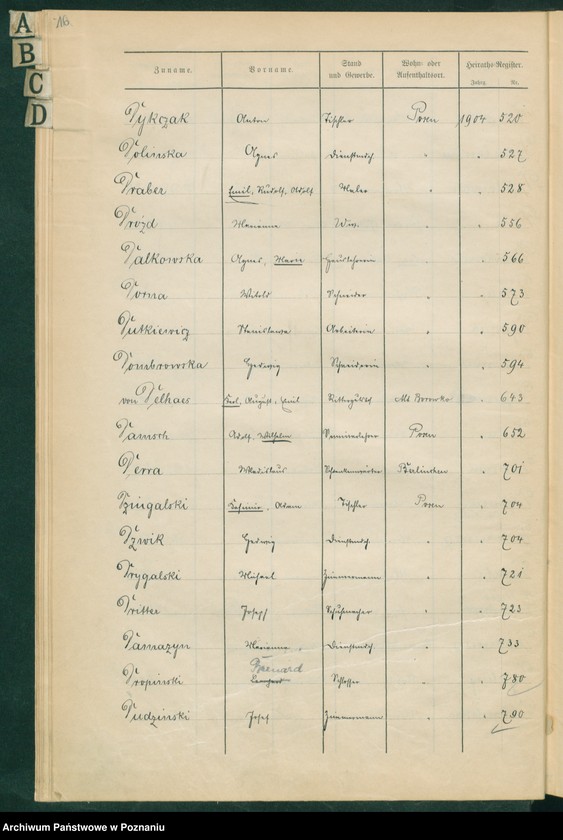 A
B
C
D
16.
Zuname. Vorname. Stand und Gewerbe. Wohn- oder Aufenthaltsort. Heiraths-Register.
Jahrg. Nr.
Dykczak Anton Tischler Posen 1904 520
Dolinska Agnes Dienstmdch. " " 527
Draber Emil, Rudolf, Adolf Maler " " 528
Drozd Marianna Ww. " " 556
Dalkowska Agnes, Marie " " 566
Dorna Witold Schneider " " 573
Dutkiewicz Stanislawa Arbeiterin " " 590
Dombrowska Hedwig Schneiderin " " 594
von Delhaes Karl, August, Emil Alt Borowko " 643
Damsch Adolf, Wilhelm Posen " 652
Derra Wladislaus Berlinchen " 701
Dzingalski Kasimir, Adam Tischler Posen " 704
Dzwik Hedwig Dienstmdch. " " 704
Drygalski Michael Zimmermann " " 721
Dritte Joseph Schuhmacher " " 723
Damazyn Marianna Dienstmdch. " " 733
Dropinski Bernard Schlosser " " 780
Dudzinski Josef Zimmermann " " 790
Archiwum Państwowe w Poznaniu